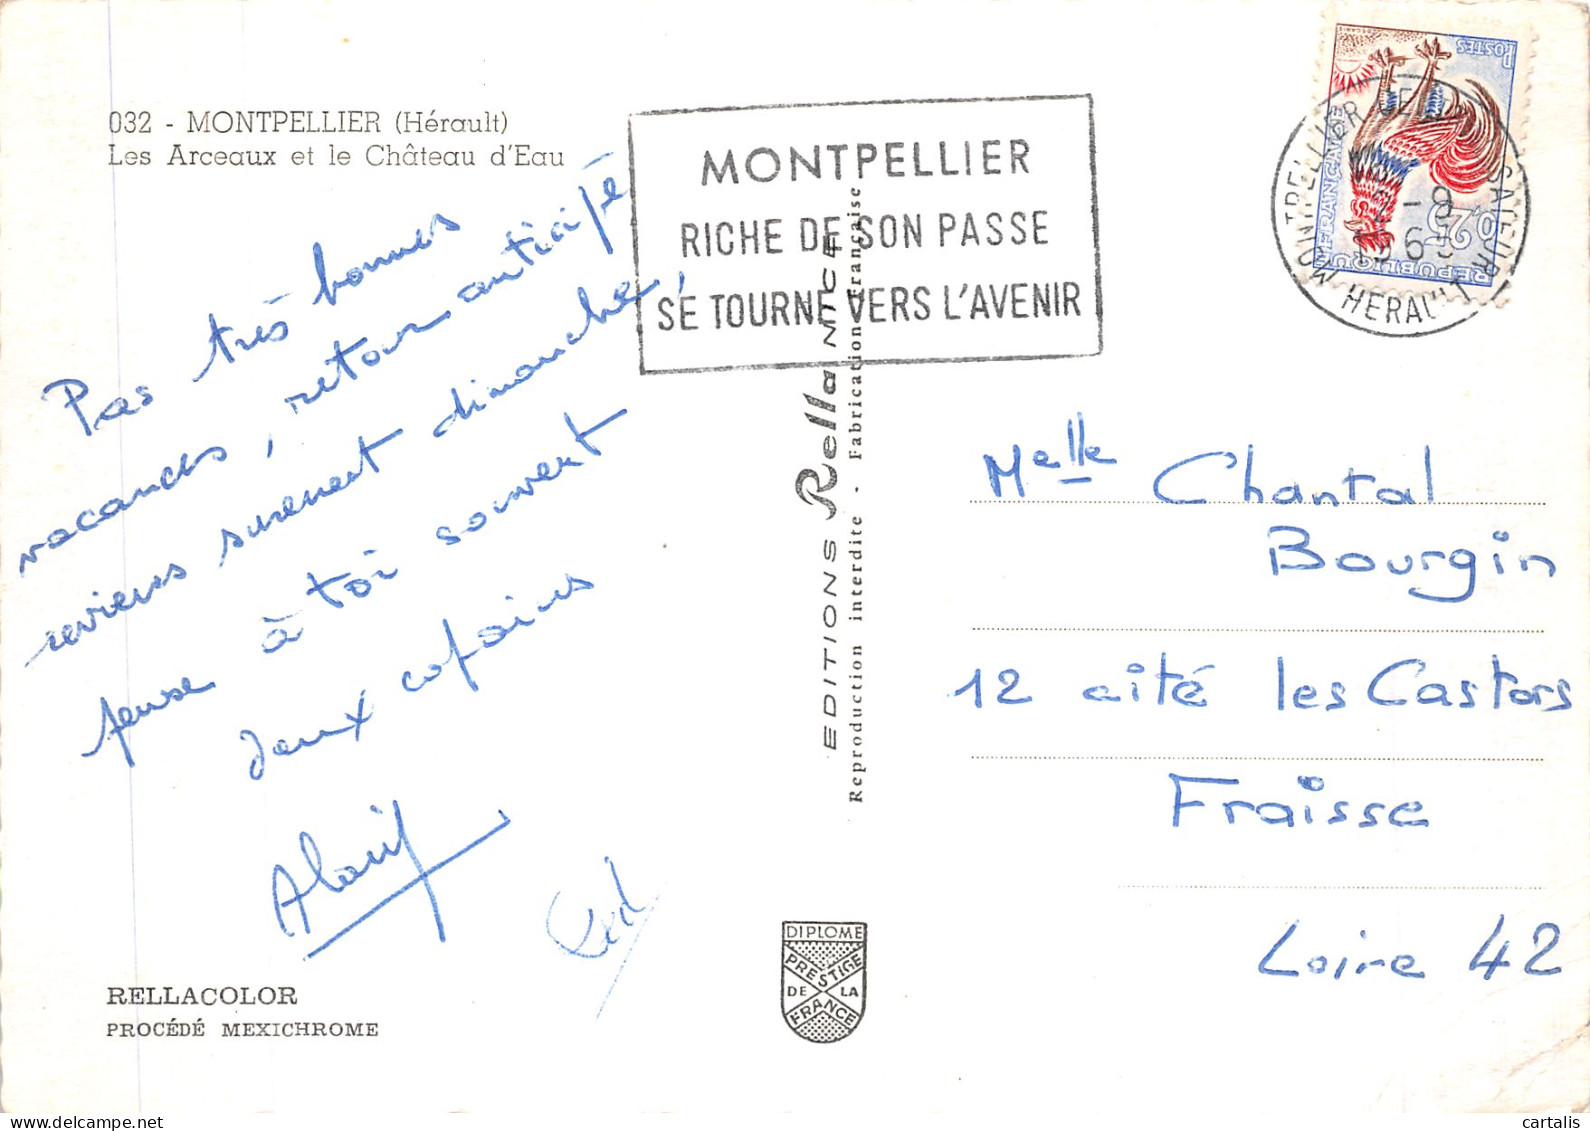 032 - MONTPELLIER (Hérault)
Les Arceaux et le Château d'Eau
Pas très bonnes
vacances, retour anticipé
reviens surement dimanche,
pense à toi souvent
deux copains
Alain
RELLACOLOR
PROCÉDÉ MEXICHROME
MONTPELLIER
RICHE DE SON PASSE
SE TOURNE VERS L'AVENIR
EDITIONS Rella NICE
Reproduction interdite - Fabrication Française
DIPLOME
PRESTIGE
DE LA
FRANCE
POSTES
REPUBLIQUE FRANÇAISE
0,25
MONTPELLIER
HERAULT
Melle Chantal
Bourgin
12 cité les Castors
Fraisse
Loire 42
cartalis